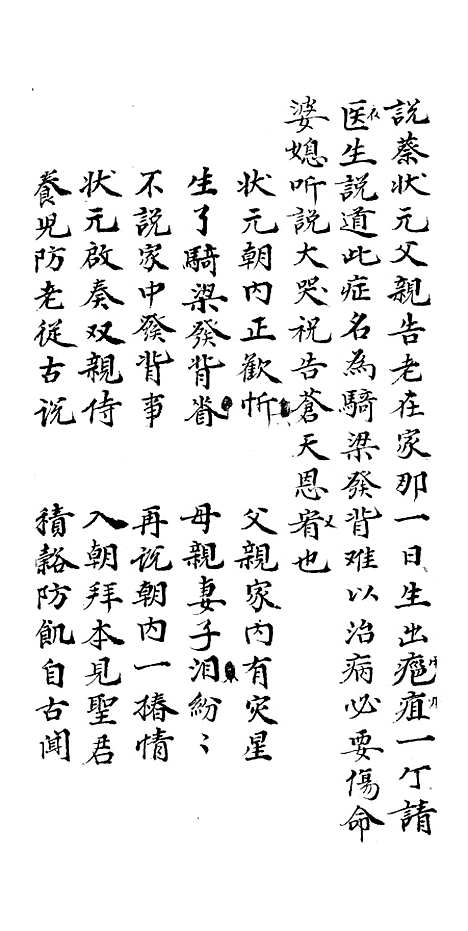 說蔡状元父親告老在家那一日生出疤疽一个請
医生説道此症名為騎梁發背难以治病必要傷命
婆媳听説大哭祝告蒼天恩宥也
状元朝内正歡忻 父親家内有灾星
生了騎梁發背眥 母親妻子泪紛〻
不説家中發背事 再説朝内一樁情
状元啟奏双親侍 入朝拜本見聖君
養児防老從古説 積穀防飢自古聞